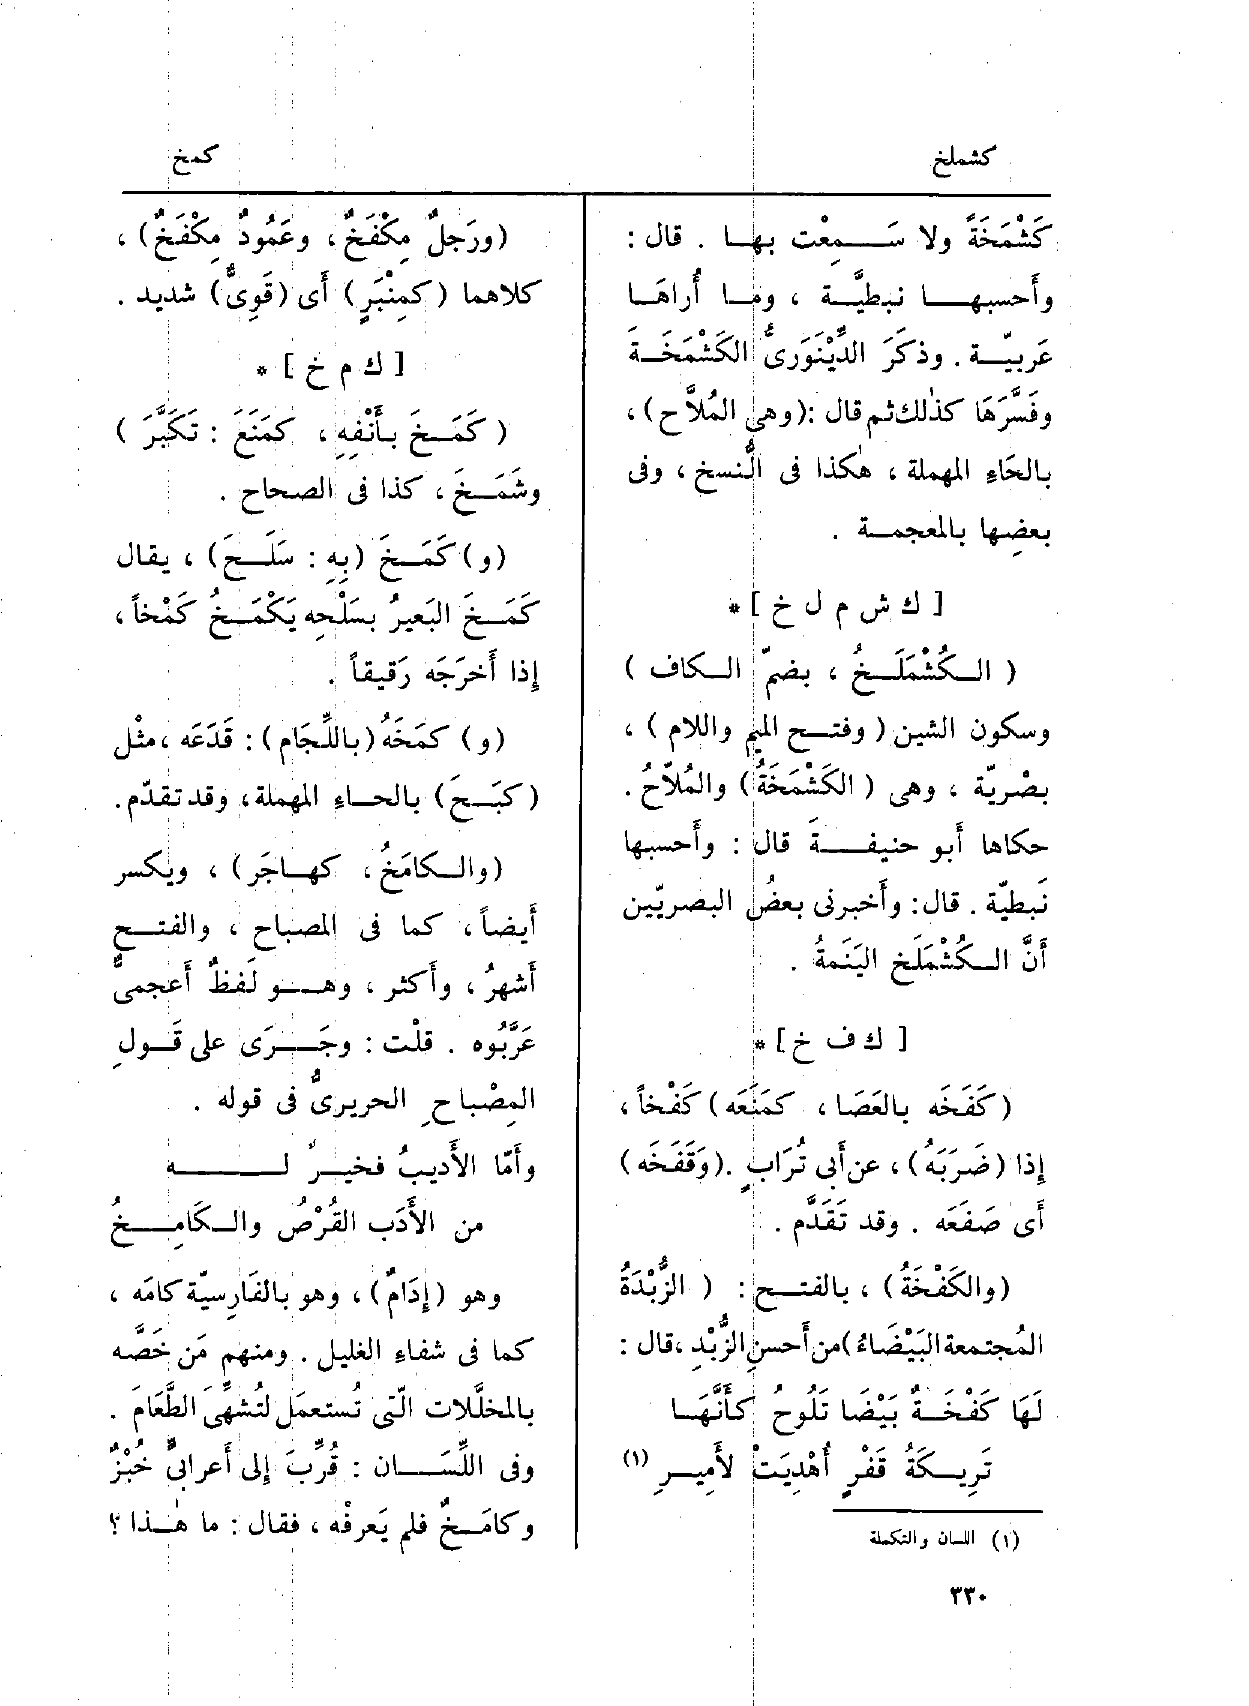 كشملخ
كمخ
كَشْمَخَةً ولا سَمِعْت بها . قال :
وأَحسبها نبطيَّة ، وما أُراهَا
عَربيّة . وذكَرَ الدِّينَوَرىُّ الكَشْمَخَة
وفَسَّرَهَا كذٰلك ثم قال :(وهى المُلاَّح) ،
بالحَاءِ المهملة ، هٰكذا فى النُّسخ ، وفى
بعضِها بالمعجمة .
[ ك ش م ل خ ] *
( الكُشْمَلَخُ ، بضمّ الكاف )
وسكون الشين ( وفتح الميم واللام ) ،
بصْريّة ، وهى ( الكَشْمَخَةُ ) والمُلاّحُ .
حكاها أَبو حنيفةَ قال : وأَحسبها
نَبطيّة . قال : وأَخبرنى بعضُ البصريّين
أَنَّ الكُشْمَلَخ اليَنَمةُ .
[ ك ف خ ] *
(كَفَخَه بالعَصَا ، كمنَعَه) كَفْخاً ،
إذا (ضَرَبَهُ) ، عن أَبى تُرَابٍ .(وَقَفَخَه)
أَى صَفَعَه . وقد تَقَدَّم .
(والكَفْخَةُ) ، بالفتح : ( الزُّبْدَةُ
المُجتمعة البَيْضَاءُ) من أَحسنِ الزُّبْدِ ، قال :
لَهَا كَفْخَةٌ بَيْضَا تَلُوحُ كأَنَّهَا
تَرِيكَةُ قَفْرٍ أُهْدِيَتْ لأَمِيرِ (١)
(١) اللسان والتكملة
(ورَجلٌ مِكْفَخٌ ، وعَمُودٌ مِكْفَخٌ) ،
كلاهما (كمِنْبَرٍ) أَى (قَوِىٌّ) شديد .
[ ك م خ ] *
( كَمَخَ بأَنْفِهِ ، كمَنَعَ : تكَبَّرَ )
وشَمَخَ ، كذا فى الصحاح .
(و) كَمَخَ (بِهِ : سَلَحَ) ، يقال
كَمَخَ البَعيرُ بسَلْحِه يَكْمَخُ كَمْخاً ،
إذا أَخرَجَه رَقيقاً .
(و) كمَخَهُ (باللِّجَام) : قَدَعَه ، مثْل
(كبَحَ) بالحاءِ المهملة ، وقد تقدّم .
(والكامَخُ ، كهاجَر) ، ويكسر
أَيضاً ، كما فى المصباح ، والفتح
أَشهرُ ، وأَكثر ، وهو لَفظٌ أَعجمىٌّ
عَرَّبُوه . قلْت : وجَرَى على قَولِ
المِصْباحِ الحريرىُّ فى قوله .
وأَمّا الأَديبُ فخيرٌ له
من الأَدَب القُرْصُ والكَامِخُ
وهو (إدَامٌ) ، وهو بالفَارِسيّة كامَه ،
كما فى شفاءِ الغليل . ومنهم مَن خَصَّه
بالمخلَّلات الّتى تُستعمَل لتُشهِّىَ الطَّعَامَ .
وفى اللِّسَان : قُرِّبَ إلى أَعرابىٍّ خُبْزٌ
وكامَخٌ فلم يَعرفْه ، فقال : ما هٰذا ؟
٣٣٠